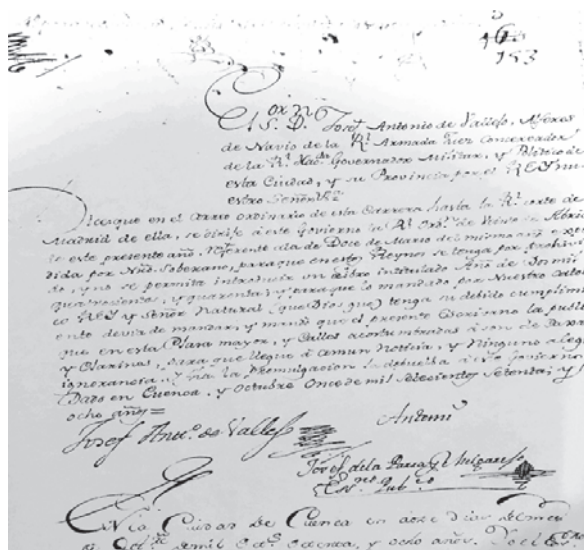 163
153
El S. D. Josef Antonio de Vallejo, Alferez
de Navio de la Rl. Armada Juez Conservador
de la Rl. Hacda. Governador Militar, y Politico de
esta Ciudad, y su Provincia por el REY nu-
estro Señor &a.
Por que en el Correo ordinario de esta Carrera hasta la Rl. corte de
Madrid de ella, se dirije á este Govierno la Rl. Orden. de Veinte de Abril
de este presente año, referente á la de Doce de Marzo del mismo año expe-
dida por Nño. Soberano, para que en estos Reynos se tenga por prohivi-
do, y no se permita introducir un Libro intitulado Año de dos mil
quatrocientos, y quarenta; y para que lo mandado por Nuestro catoli-
co REY y Señor Natural (que Dios gue.) tenga su debido cumplimi-
ento devia de mandar, y mandó que el presente Escrivano lo publi-
que en esta Plaza mayor, y Calles acostumbradas á son de
y Clarines, para que llegue á comun Noticia, y Ninguno alegue
ignorancia, y la Promulgacion la debuelba á este Govierno
Dado en Cuenca, y Octubre Once de mil setecientos setenta, y
ocho años =
Josef Anto. de Vallejo
Antemi
Josef de la
Esno. Pubco.
En la Ciudad de Cuenca en doce Dias del mes
de Octre. de mil Setos. Setenta, y ocho años, Yo el Esno.